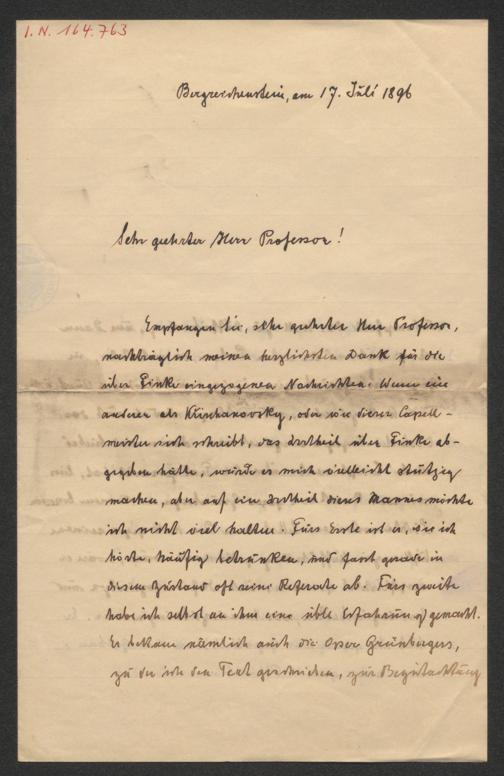 I. N. 164.763
Bergreichenstein, am 17. Juli 1896
Sehr geehrter Herr Professor!
Empfangen Sie, sehr geehrter Herr Professor,
nachträglich meinen herzlichsten Dank für die
über Finke eingezogenen Nachrichten. Wenn ein
anderer als Krischanovsky, oder wie dieser Capell-
meister sich schreibt, das Urtheil über Finke ab-
gegeben hätte, würde es mich vielleicht stutzig
machen, aber auf ein Urtheil dieses Mannes möchte
ich nicht viel halten. Fürs Erste ist er, wie ich
hörte, häufig betrunken, und fasst gerade in
diesem Zustand oft seine Referate ab. Fürs zweite
habe ich selbst an ihm eine üble Erfahrung gemacht.
Er bekam nämlich auch die Oper Grünbergers,
zu der ich den Text geschrieben, zur Begutachtung